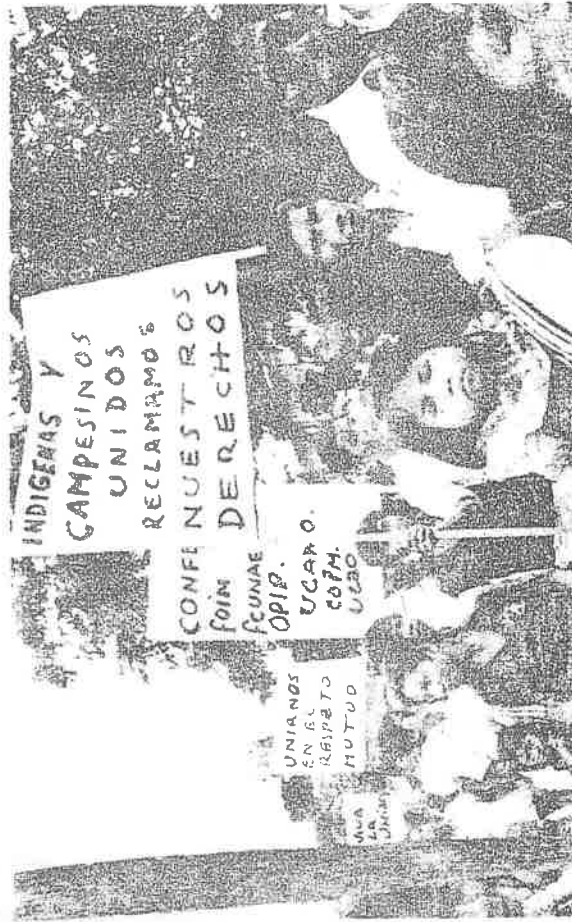 INDIGENAS Y
CAMPESINOS
UNIDOS
RECLAMAMOS
NUESTROS
DERECHOS
CONFE
FOIN
FCUNAE
OPIP.
UCAAO.
COPM.
UCAO
UNIRNOS
EN EL
RESPETO
MUTUO
VIVA
LA